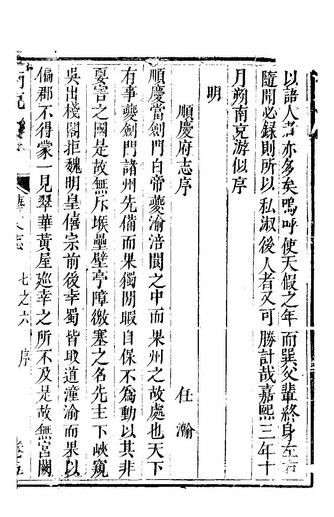 以諸人者亦多矣嗚呼使天假之年而巽父輩終身左右
隨聞必錄則所以私淑後人者又可勝計哉嘉熙三年十
月朔南充游似序
明
順慶府志序
任瀚
順慶當劍門白帝夔渝涪閬之中而果州之故處也天下
有事夔劍門諸州先備而果獨閒暇自保不為動以其非
要害之國是故無斥堠壘壁亭障徼塞之名先主下峽窺
吳出棧閣拒魏明皇僖宗前後幸蜀皆取道潼渝而果以
偏郡不得蒙一見翠華黃屋巡幸之所不及是故無宮闕
藝文志
七之六
序